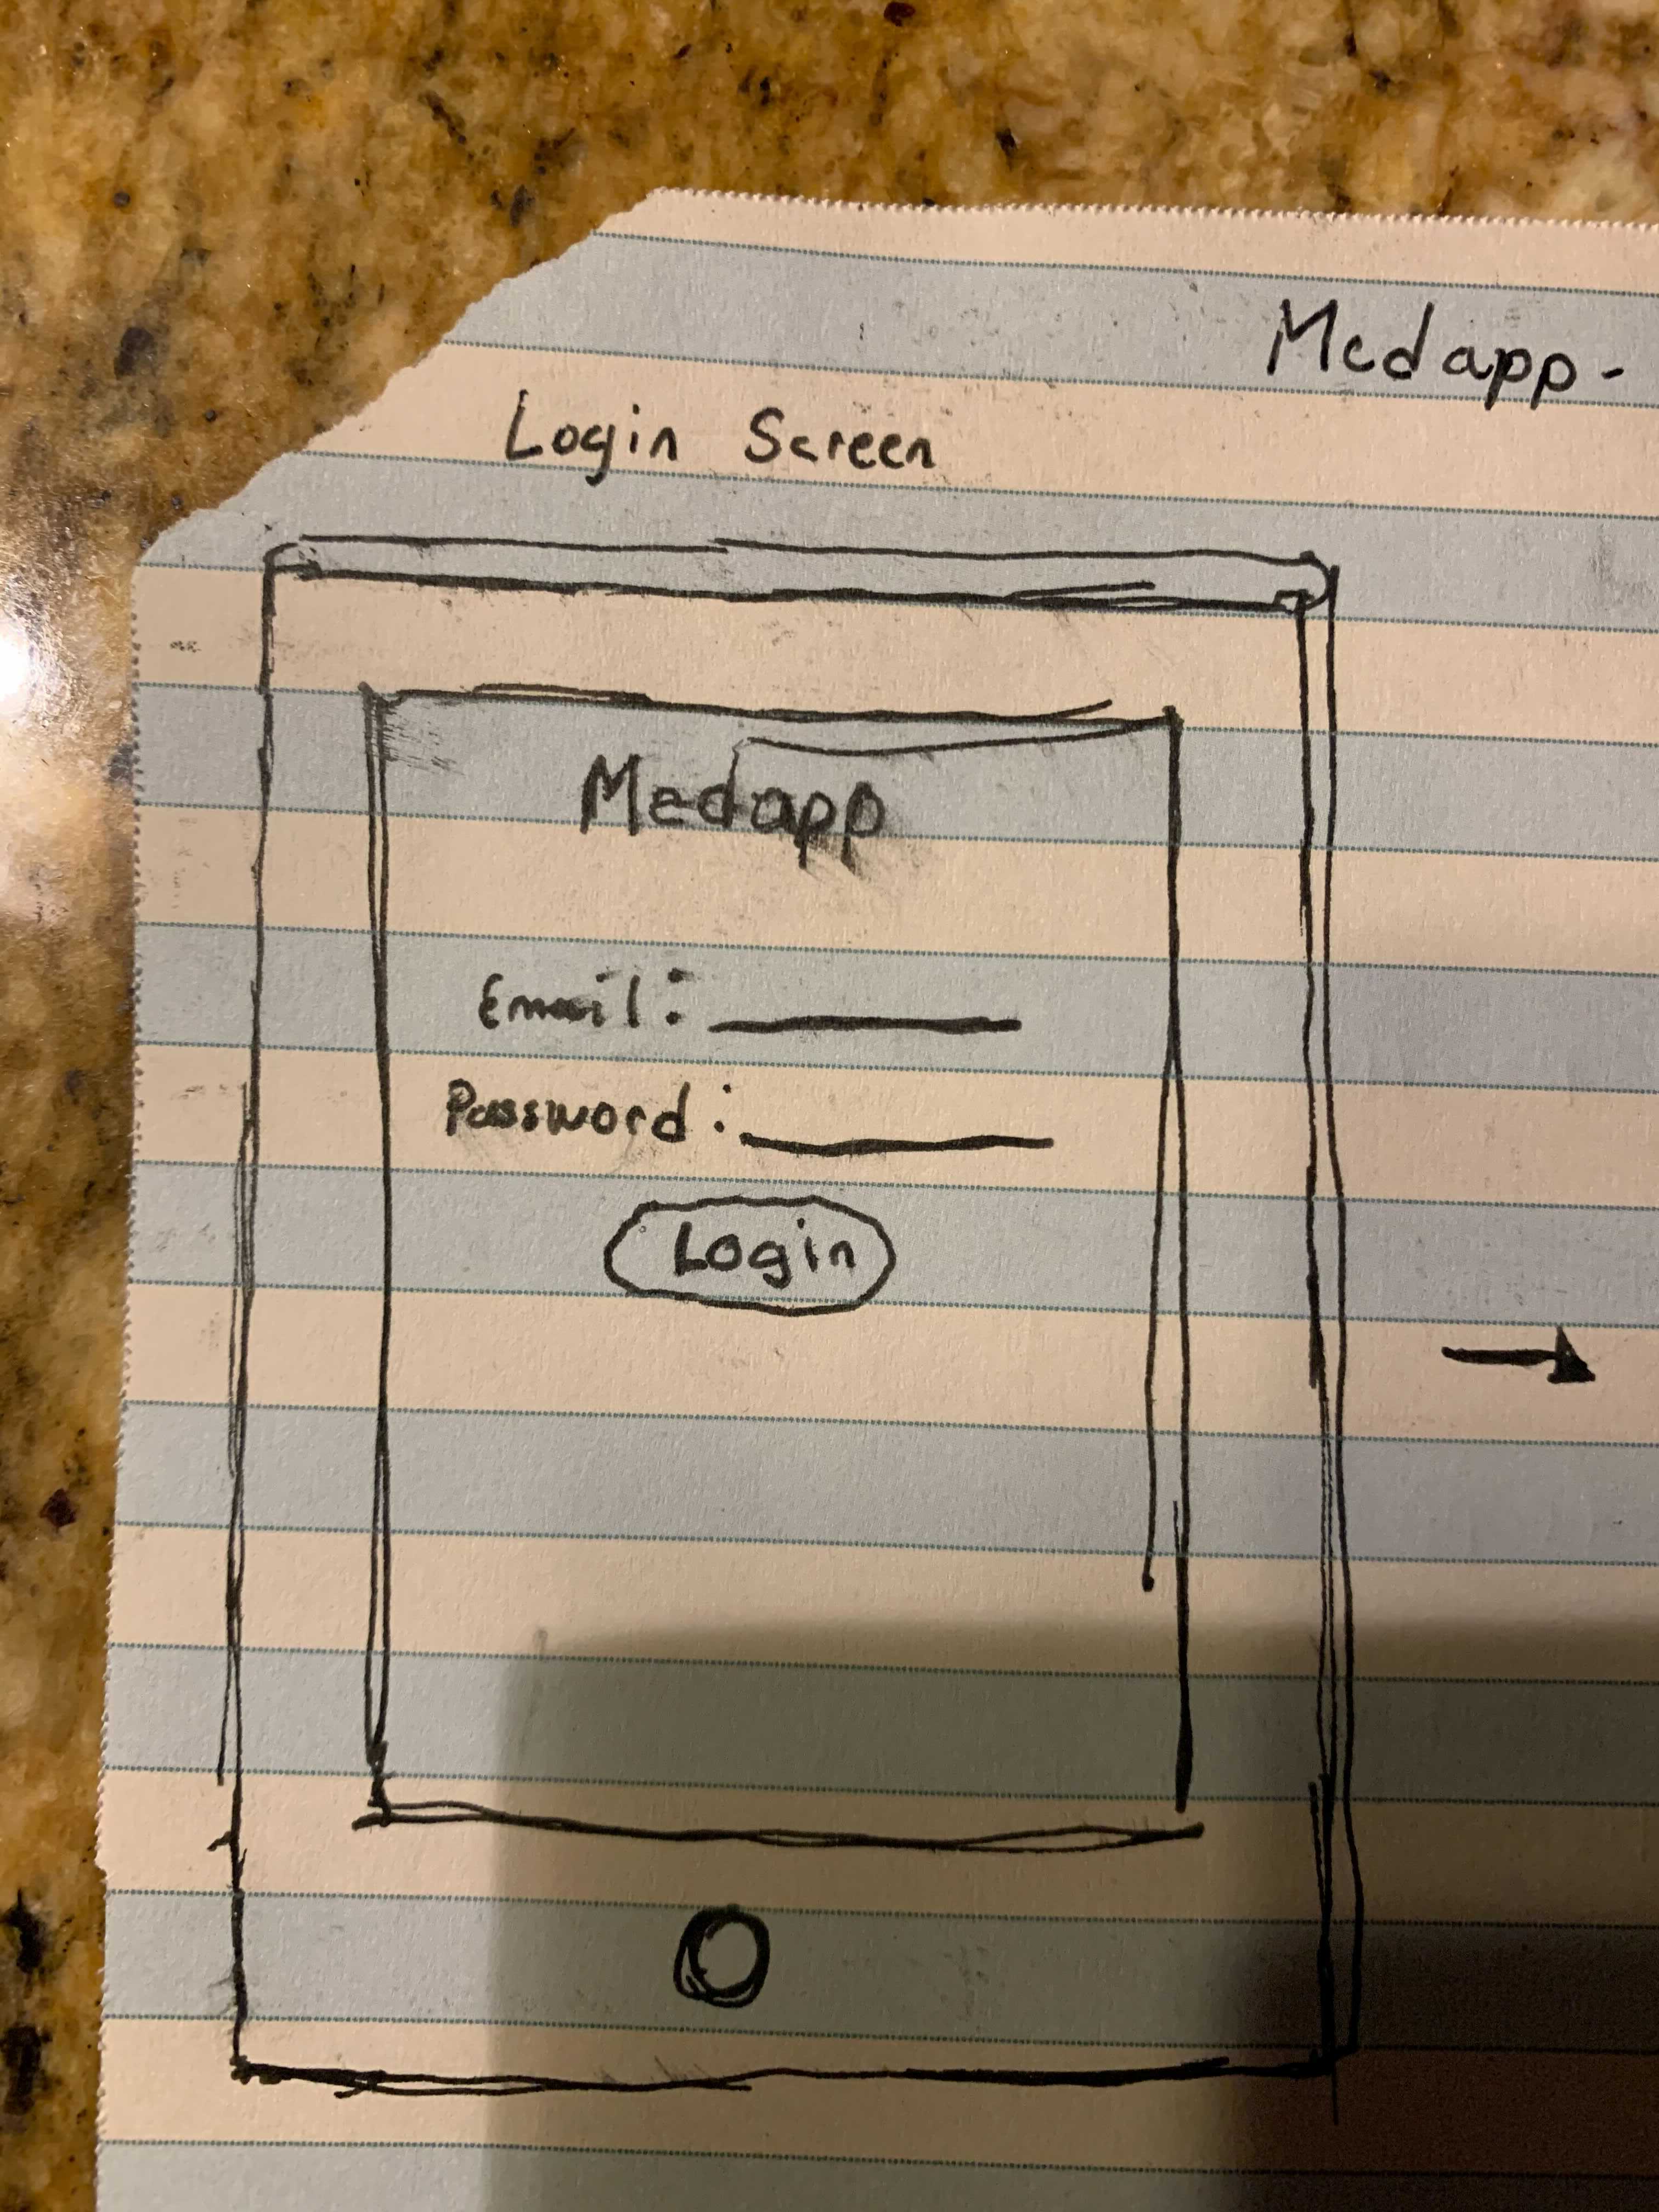 Medapp-
Login Screen
Medapp
Email:
Password:
Login